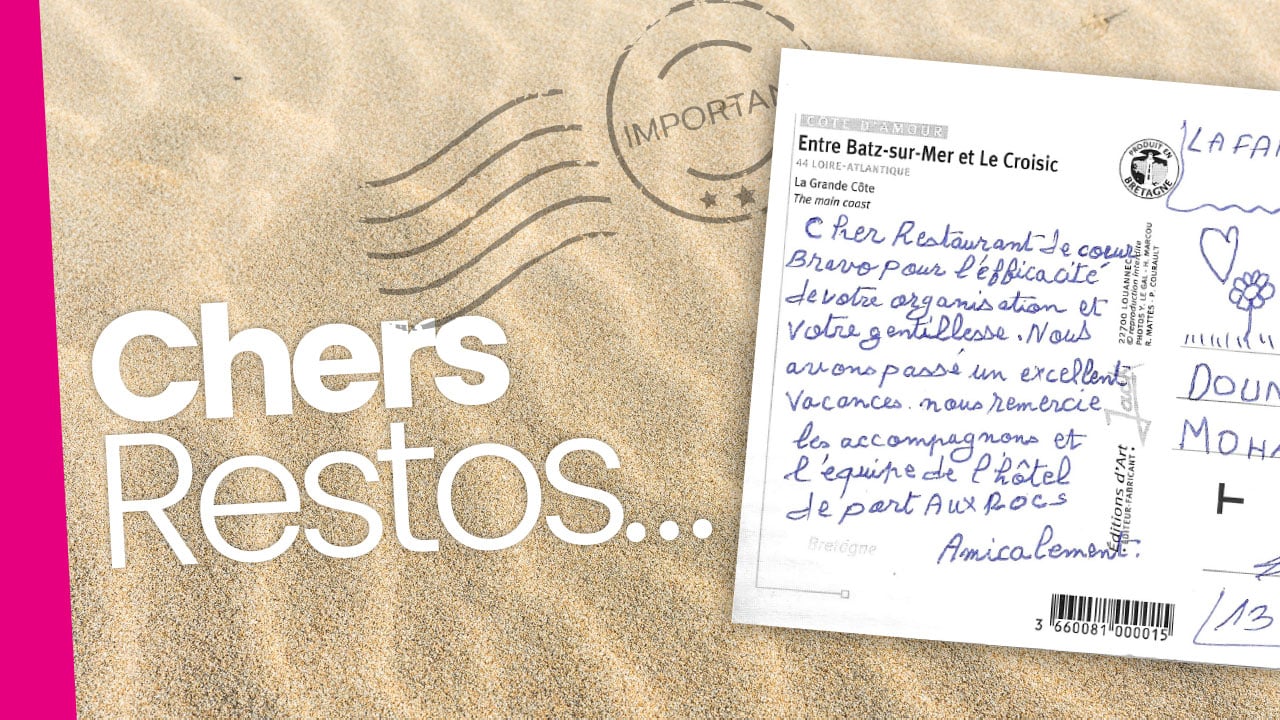 IMPORTAN
Chers
Restos...
CÔTE D'AMOUR
Entre Batz-sur-Mer et Le Croisic
44 LOIRE-ATLANTIQUE
La Grande Côte
The main coast
PRODUIT EN
BRETAGNE
Cher Restaurant de coeur
Bravo pour l'éfficacité
de votre organisation et
votre gentillesse. Nous
avons passé un excellent
vacances. nous remercie
les accompagnons et
l'équipe de l'hôtel
de port AUX ROCS
Amicalement.
Bretagne
22700 LOUANNEC
© reproduction interdite
PHOTOS Y. LE GAL - H. MARCOU
R. MATTES - P. COURAULT
Jack
Editions d'Art
EDITEUR-FABRICANT
3 660081 000015
LA FA
DOUN
MOHA
T
13